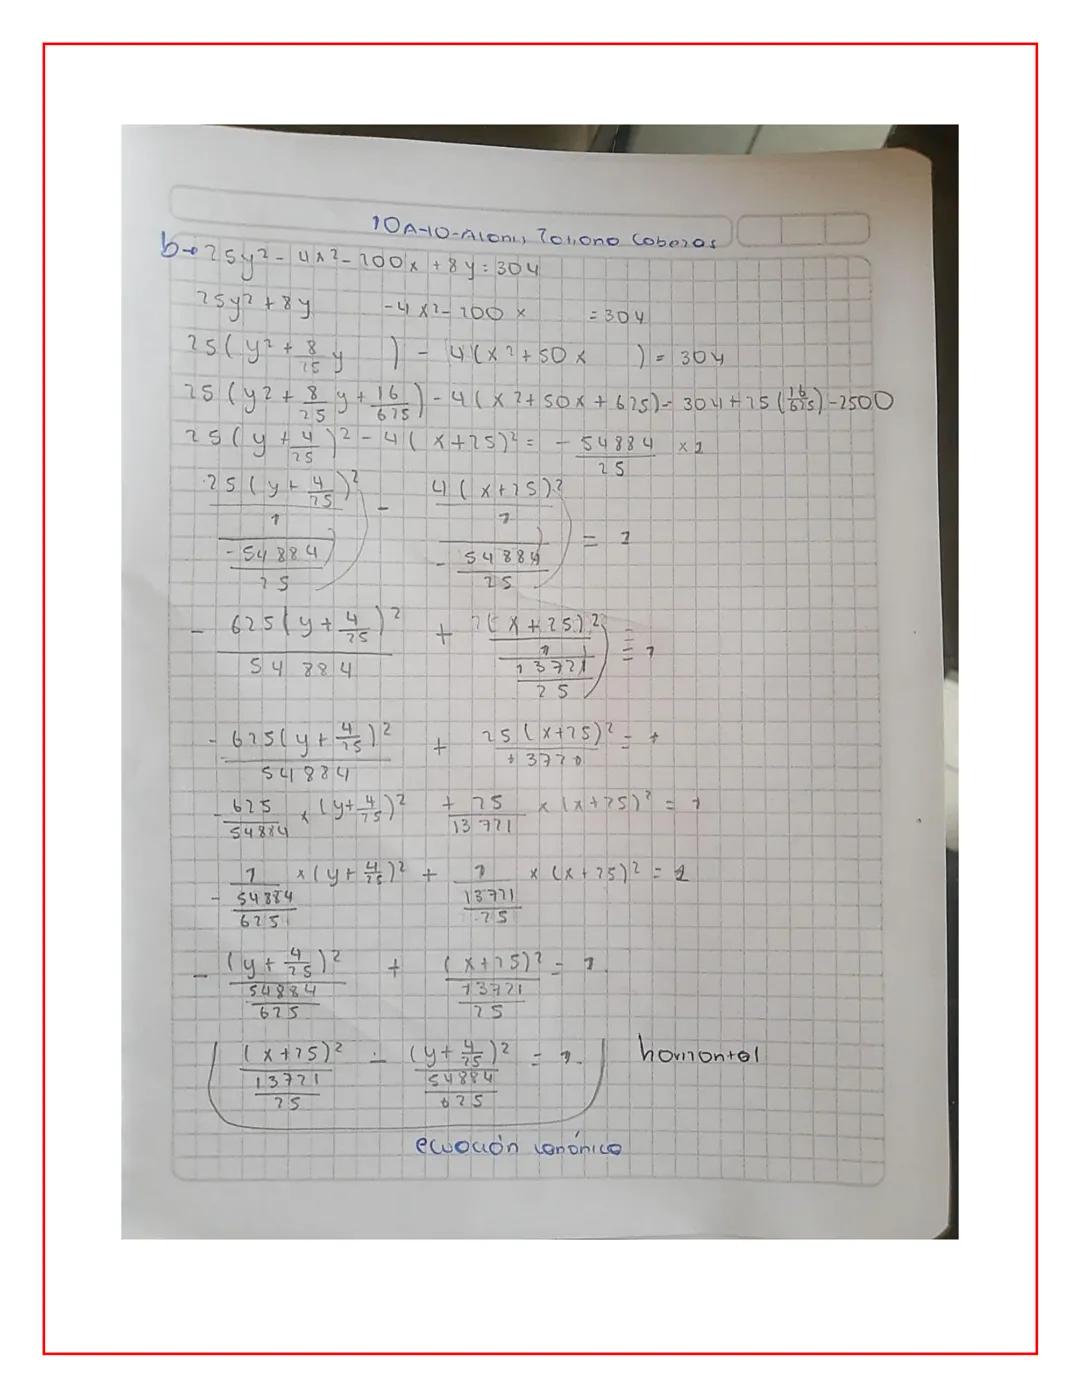 10A-10-
b→25y² - 4x² - 200x + 8y = 304
25y² + 8y - 4x² - 200x = 304
25(y² + 8/25 y ) - 4(x² + 50x ) = 304
25(y² + 8/25 y + 16/625) - 4(x² + 50x + 625) = 304 + 25(16/625) - 2500
25(y + 4/25)² - 4(x+25)² = - 54884/25 x 1
25(y + 4/25)²/1 / -54884/25 - 4(x+25)²/1 / -54884/25 = 1
- 625(y + 4/25)²/54884 + (x+25)²/1 / 13721/25 = 1
- 625(y + 4/25)²/54884 + 25(x+25)²/ = 1
- 625/54884 x (y + 4/25)² + 25/13721 x (x+25)² = 1
- 1/54884/625 x (y + 4/25)² + 1/13721/25 x (x+25)² = 1
- (y + 4/25)²/54884/625 + (x+25)²/13721/25 = 1.
(x+25)²/13721/25 - (y + 4/25)²/54884/625 = 1. horizontal
ecuación canónica